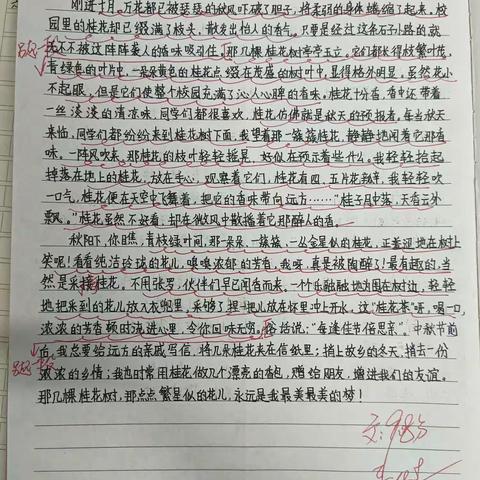 刚进十月,万花都已被瑟瑟的秋风吓破了胆子,将柔弱的身体蜷缩了起来,校
园里的桂花却已缀满了枝头,散发出怡人的香气。只要是经过这条石子小路的就
无不被这阵阵袭人的香味吸引住。那几棵桂花树亭亭玉立。它们都长得枝繁叶茂,
青绿色的叶片中,一朵朵黄色的桂花点缀在茂盛的树叶中,显得格外明显。虽然花小
不起眼,但是它们使整个校园充满了沁人心脾的香味。桂花十分香,香中还带着
一丝淡淡的清凉味,同学们都很喜欢,桂花仿佛就是秋天的预报者。每当秋天
来临,同学们都纷纷来到桂花树下面,我望着那一簇簇桂花,静静地闻着它那香
味。一阵风吹来,那桂花的枝叶轻轻摇晃,好似在预示着些什么。我轻轻拾起
掉落在地上的桂花,放在手心,观察着它们,桂花有四、五片花瓣,我轻轻吹
一口气,桂花便在天空中飞舞着,把它的香味带向远方……"桂子月中落,天香云外
飘。"桂花虽然不好看,却在微风中散播着它那醉人的香。
秋阳下,你瞧,青枝绿叶间,那一朵朵、一簇簇,一丛金星似的桂花,正羞涩地在树上
笑呢!看看纯洁玲珑的花儿,嗅嗅浓郁的芳香,我呀,真是被陶醉了!最有趣的,当
然是采摘桂花。不用张罗,伙伴们早已闻香而来。一个个乐融融地围在树边,轻轻
地把采到的花儿放入衣兜里,采够了,把一把儿放在怀里冲上开水,这"桂花茶"呀,喝一口,
浓浓的芳香顿时流进心里,令你回味无穷,俗话说:"每逢佳节倍思亲"。中秋节前
后,我总要给远方的亲戚写信,将几朵桂花夹在信纸里;捎上故乡的冬天,捎去一份
浓浓的乡情;我也时常用桂花做几个漂亮的香包,赠给朋友,增进我们的友谊。
那几棵桂花树,那点点繁星似的花儿,永远是我最美最美的梦!
98分